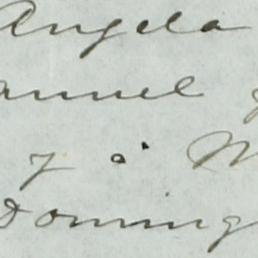 Angela
anuel
y a M
Doming